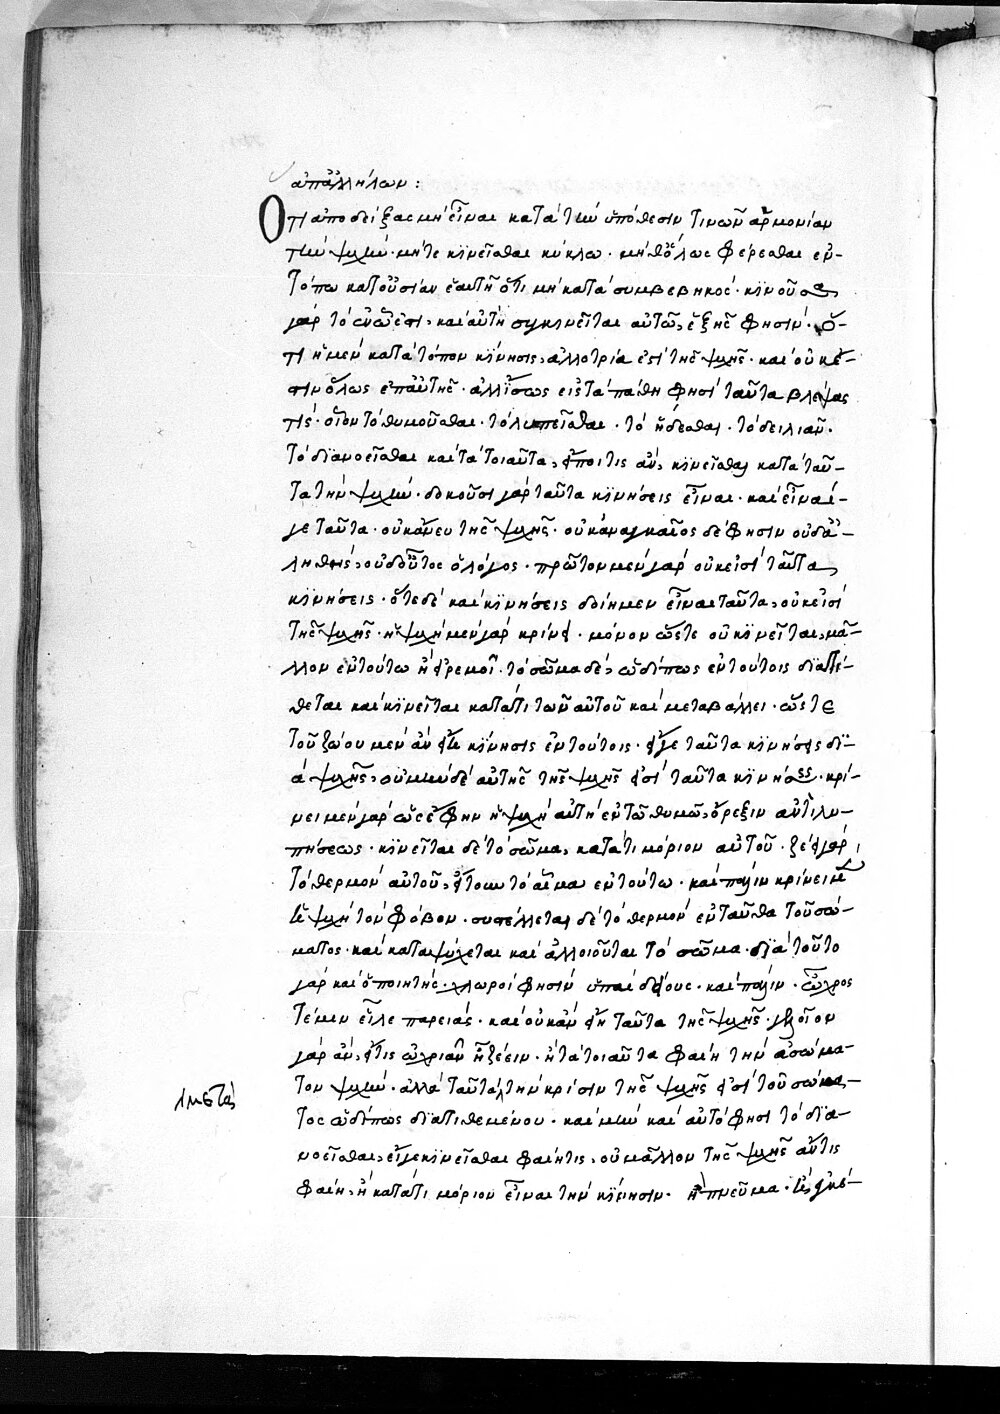 ἀπαλλήλων :
Ὅτι ἀποδείξας μὴ εἶναι κατὰ τὴν ὑπόθεσιν τινῶν ἁρμονίαν
τὴν ψυχὴν · μήτε κινεῖσθαι κύκλω · μήθ' ὅλως φέρεσθαι ἐν
τόπω κατ' οὐσίαν ἑαυτῆ ὅτι μὴ κατὰ συμβεβηκός · κινοῦσα
γὰρ τὸ ἐν ὧ ἐστι, καὶ αὐτὴ συγκινεῖται αὐτῶ, ἑξῆς φησίν · ὅ-
τι ἡ μὲν κατὰ τόπον κίνησις, ἀλλοτρία ἐστὶ τῆς ψυχῆς · καὶ οὐκ ἔ-
στιν ὅλως ἐπ' αὐτῆς · ἀλλ' ἴσως εἰς τὰ πάθη φησὶ ταῦτα βλέψας
τίς · οἷον τὸ θυμοῦσθαι · τὸ λυπεῖσθαι · τὸ ἥδεσθαι · τὸ δειλιᾶν ·
τὸ διανοεῖσθαι καὶ τὰ τοιαῦτα, εἴποι τις ἂν, κινεῖσθαι κατὰ ταῦ-
τα τὴν ψυχὴν · δοκοῦσι γὰρ ταῦτα κινήσεις εἶναι · καὶ εἶναί-
γε ταῦτα · οὐκ ἄνευ τῆς ψυχῆς · οὐκ ἀναγκαῖος δέ φησιν οὐδ' ἀ-
ληθὴς, οὐδ' οὗτος ὁ λόγος · πρῶτον μὲν γὰρ οὐκ εἰσὶ ταῦτα
κινήσεις · ὅτε δὲ καὶ κινήσεις δοίημεν εἶναι ταῦτα, οὐκ εἰσὶ
τῆς ψυχῆς · ἡ ψυχὴ μὲν γὰρ κρίνει · μόνον ὥστε οὐ κινεῖται, μᾶ-
λλον ἐν τούτω ἢ ἠρεμεῖ · τὸ σῶμα δὲ, ὡδίπως ἐν τούτοις διατί-
θεται καὶ κινεῖται κατά τι τῶν αὐτοῦ καὶ μεταβάλλει · ὥστε
τοῦ ζώου μὲν ἂν εἴη κίνησις ἐν τούτοις · εἴγε ταῦτα κινήσεις δι-
ὰ ψυχῆς, οὐ μὴν δὲ αὐτῆς τῆς ψυχῆς εἰσὶ ταῦτα κινήσεις · κρί-
νει μὲν γὰρ ὡς ἔφην ἡ ψυχὴ αὐτὴ ἐν τῶ θυμῶ, ὄρεξιν ἀντιλυ-
πήσεως · κινεῖται δὲ τὸ σῶμα, κατά τι μόριον αὐτοῦ · ζεῖ γὰρ
τὸ θερμὸν αὐτοῦ, ἤτοι τὸ αἷμα ἐν τούτω · καὶ πάλιν κρίνει μὲν
ἡ ψυχὴ τὸν φόβον · συστέλλεται δὲ τὸ θερμὸν ἐνταῦθα τοῦ σώ-
ματος · καὶ καταψύχεται καὶ ἀλλοιοῦται τὸ σῶμα · διὰ τοῦτο
γὰρ καὶ ὁ ποιητής · χλωροί φησιν ὑπαὶ δείους · καὶ πάλιν · ὦχρος
τέ μιν εἷλε παρειάς · καὶ οὐκ ἂν εἴη ταῦτα τῆς ψυχῆς · γελοῖον
γὰρ ἂν, εἴ τις ὠχριᾶν ἢ ζέειν · ἢ τὰ τοιαῦτα φαίη τὴν ἀσώμα-
τον ψυχὴν · ἀλλὰ ταῦτα, τὴν κρίσιν τῆς ψυχῆς εἰσὶ τοῦ σώμα-
μετὰ
τος ὡδίπως διατιθεμένου · καὶ μὴν καὶ αὐτὸ φησὶ τὸ δια-
νοεῖσθαι, εἴγε κινεῖσθαι φαίη τις, οὐ μᾶλλον τῆς ψυχῆς ἄν τις
φαίη, ἢ κατά τι μόριον εἶναι τὴν κίνησιν · ἢ πνεῦμα ·